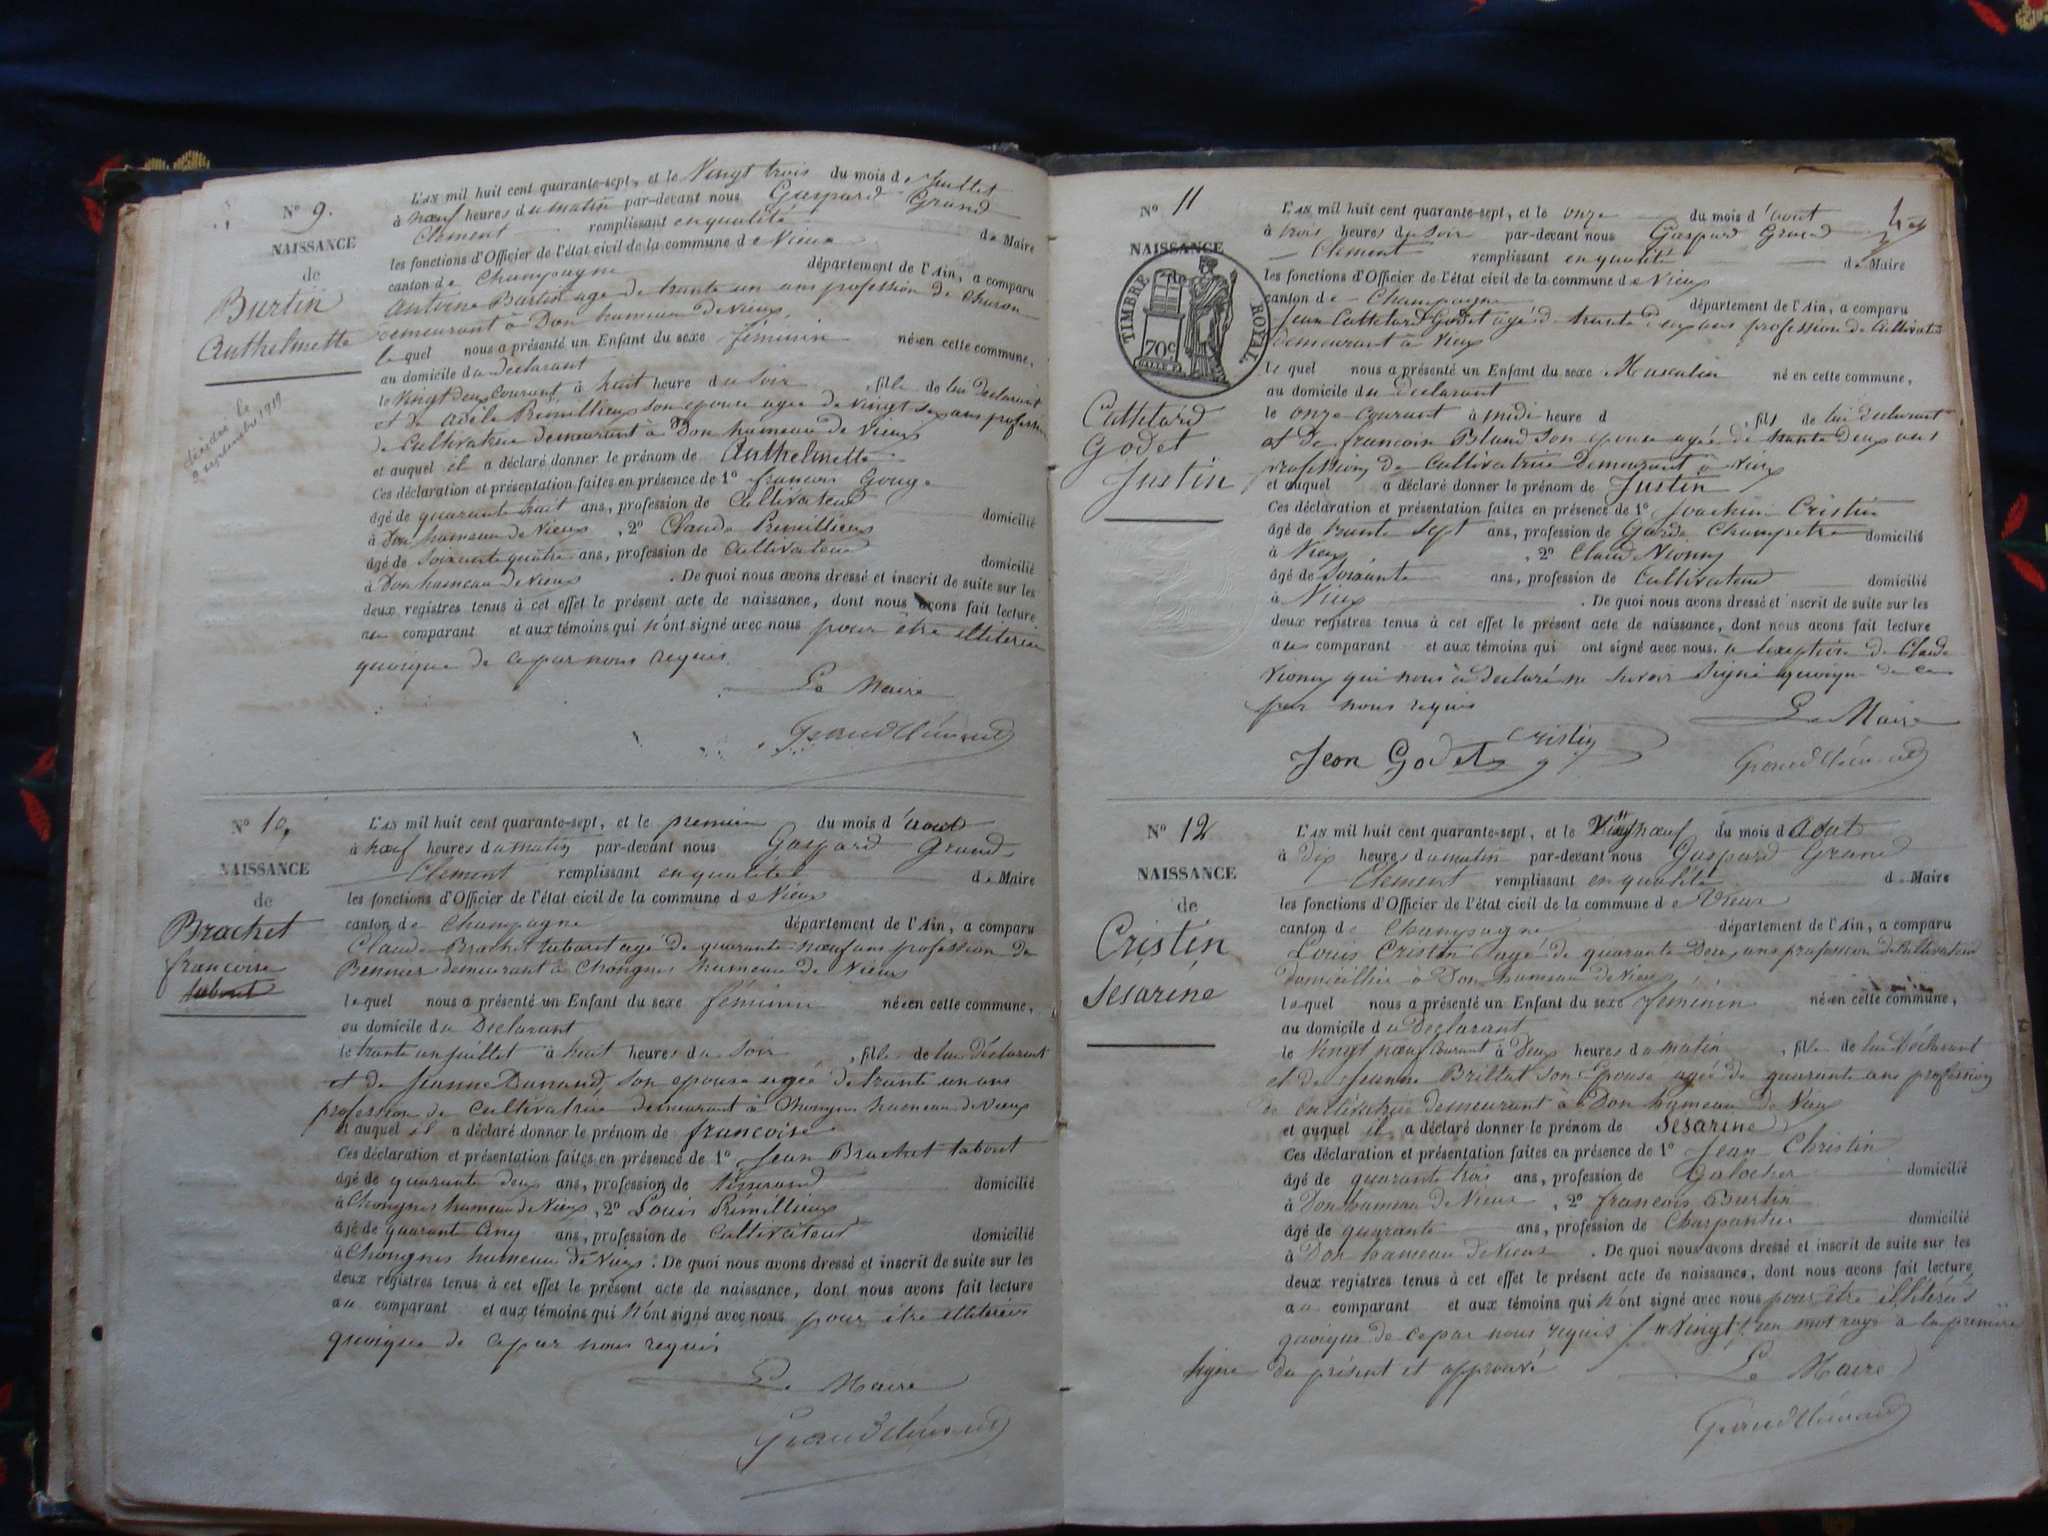 N° 9.
NAISSANCE
de
Burtin
Anthelmette
décédée le
2 septembre 1919
L'AN mil huit cent quarante-sept, et le Vingt trois du mois de Juillet
à nœuf heures du matin par-devant nous Gaspard Grand
Clement remplissant en qualité de Maire
les fonctions d'Officier de l'état civil de la commune de Vieux
canton de Champagne département de l'Ain, a comparu
Antoine Burtin agé de trante un ans profession de Charon
demeurant à Don hameau de Vieux,
le quel nous a présenté un Enfant du sexe féminin née en cette commune,
au domicile du Declarant
le Vingt deux Courant, à huit heure du Soir, fille de lui Declarant
et de Adèle Prémillieux son epouse agée de vingt six ans profession
de Cultivatrice demeurant à Don hameau de Vieux
et auquel il a déclaré donner le prénom de Anthelmette
Ces déclaration et présentation faites en présence de 1° francois Gouge
âgé de quarante huit ans, profession de Cultivateur domicilié
à Don hameau de Vieux, 2° Claude Prémillieux
âgé de Soixante quatre ans, profession de Cultivateur domicilié
à Don hameau de Vieux. De quoi nous avons dressé et inscrit de suite sur les
deux registres tenus à cet effet le présent acte de naissance, dont nous avons fait lecture
au comparant et aux témoins qui n'ont signé avec nous pour etre illiterés
quoique de ce par nous requis.
Le Maire
Grand Clément
N° 10,
NAISSANCE
de
Brachet
francoise
tabout
L'AN mil huit cent quarante-sept, et le premier du mois d'aout
à nœuf heures du matin par-devant nous Gaspard Grand
Clement remplissant en qualité de Maire
les fonctions d'Officier de l'état civil de la commune de Vieux
canton de Champagne département de l'Ain, a comparu
Claude Brachet tabout agé de quarante nœuf ans profession de
demeurant à Chongnes hameau de Vieux
le quel nous a présenté un Enfant du sexe féminin née en cette commune,
au domicile du Declarant
le trante un juillet à huit heures du Soir, fille de lui déclarant
et de Jeanne Dunand, son epouse agée de trante un ans
profession de Cultivatrice demeurant à Chongnes hameau de Vieux
et auquel il a déclaré donner le prénom de francoise
Ces déclaration et présentation faites en présence de 1° Jean Brachet tabout
âgé de quarante deux ans, profession de domicilié
à Chongnes hameau de Vieux, 2° Louis Prémillieux
âgé de quarant Cinq ans, profession de Cultivateur domicilié
à Chongnes hameau de Vieux. De quoi nous avons dressé et inscrit de suite sur les
deux registres tenus à cet effet le présent acte de naissance, dont nous avons fait lecture
au comparant et aux témoins qui n'ont signé avec nous pour être illiterés
quoique de ce par nous requis
Le Maire
Grand Clément
N° 11
NAISSANCE
TIMBRE ROYAL
70c
Cathelard
Godet
Justin
L'AN mil huit cent quarante-sept, et le onze du mois d'aout
à trois heures du soir par-devant nous Gaspard Grand
Clement remplissant en qualité de Maire
les fonctions d'Officier de l'état civil de la commune de Vieux
canton de Champagne département de l'Ain, a comparu
Jean Cathelard Godet agé de trante deux ans profession de Cultivateur
demeurant à Vieux
le quel nous a présenté un Enfant du sexe Masculin né en cette commune,
au domicile du declarant
le onze courant à midi heure d, fils de lui declarant
et de francoise Bland son epouse agée de trante deux ans
profession de Cultivatrice Demeurant à Vieux
et auquel a déclaré donner le prénom de Justin
Ces déclaration et présentation faites en présence de 1° Joachim Cristin
âgé de trante Sept ans, profession de Garde Champetre domicilié
à Vieux, 2° Claude Vionny
âgé de Soixante ans, profession de Cultivateur domicilié
à Vieux. De quoi nous avons dressé et inscrit de suite sur les
deux registres tenus à cet effet le présent acte de naissance, dont nous avons fait lecture
au comparant et aux témoins qui ont signé avec nous. à l'exeption de Claude
Vionny qui nous à declaré ne savoir Signé quoique de ce
par nous requis
Le Maire
Jean Godet Cristin
Grand Clément
N° 12
NAISSANCE
de
Cristin
Sesarine
L'AN mil huit cent quarante-sept, et le Vingt nœuf du mois d'Aout
à dix heures du matin par-devant nous Gaspard Grand
Clement remplissant en qualité de Maire
les fonctions d'Officier de l'état civil de la commune de Vieux
canton de Champagne département de l'Ain, a comparu
Louis Cristin agé de quarante Deux ans profession de Cultivateur
domicilliée à Don hameau de Vieux
le quel nous a présenté un Enfant du sexe féminin née en cette commune,
au domicile du Declarant
le Vingt nœuf Courant à Deux heures du matin, fille de lui Déclarant
et de Jeanne Brillat son Epouse agée de quarante ans profession
de Cultivatrice demeurant à Don hameau de Vieux
et auquel il a déclaré donner le prénom de Sesarine
Ces déclaration et présentation faites en présence de 1° Jean Christin
âgé de quarante trois ans, profession de Galocher domicilié
à Don hameau de Vieux, 2° francois Burtin
âgé de quarante ans, profession de Charpantier domicilié
à Don hameau de Vieux. De quoi nous avons dressé et inscrit de suite sur les
deux registres tenus à cet effet le présent acte de naissance, dont nous avons fait lecture
au comparant et aux témoins qui n'ont signé avec nous pour etre illiterés
quoique de ce par nous requis "Vingt" un mot rayé à la première
ligne du présent et approuvé
Le Maire
Grand Clément